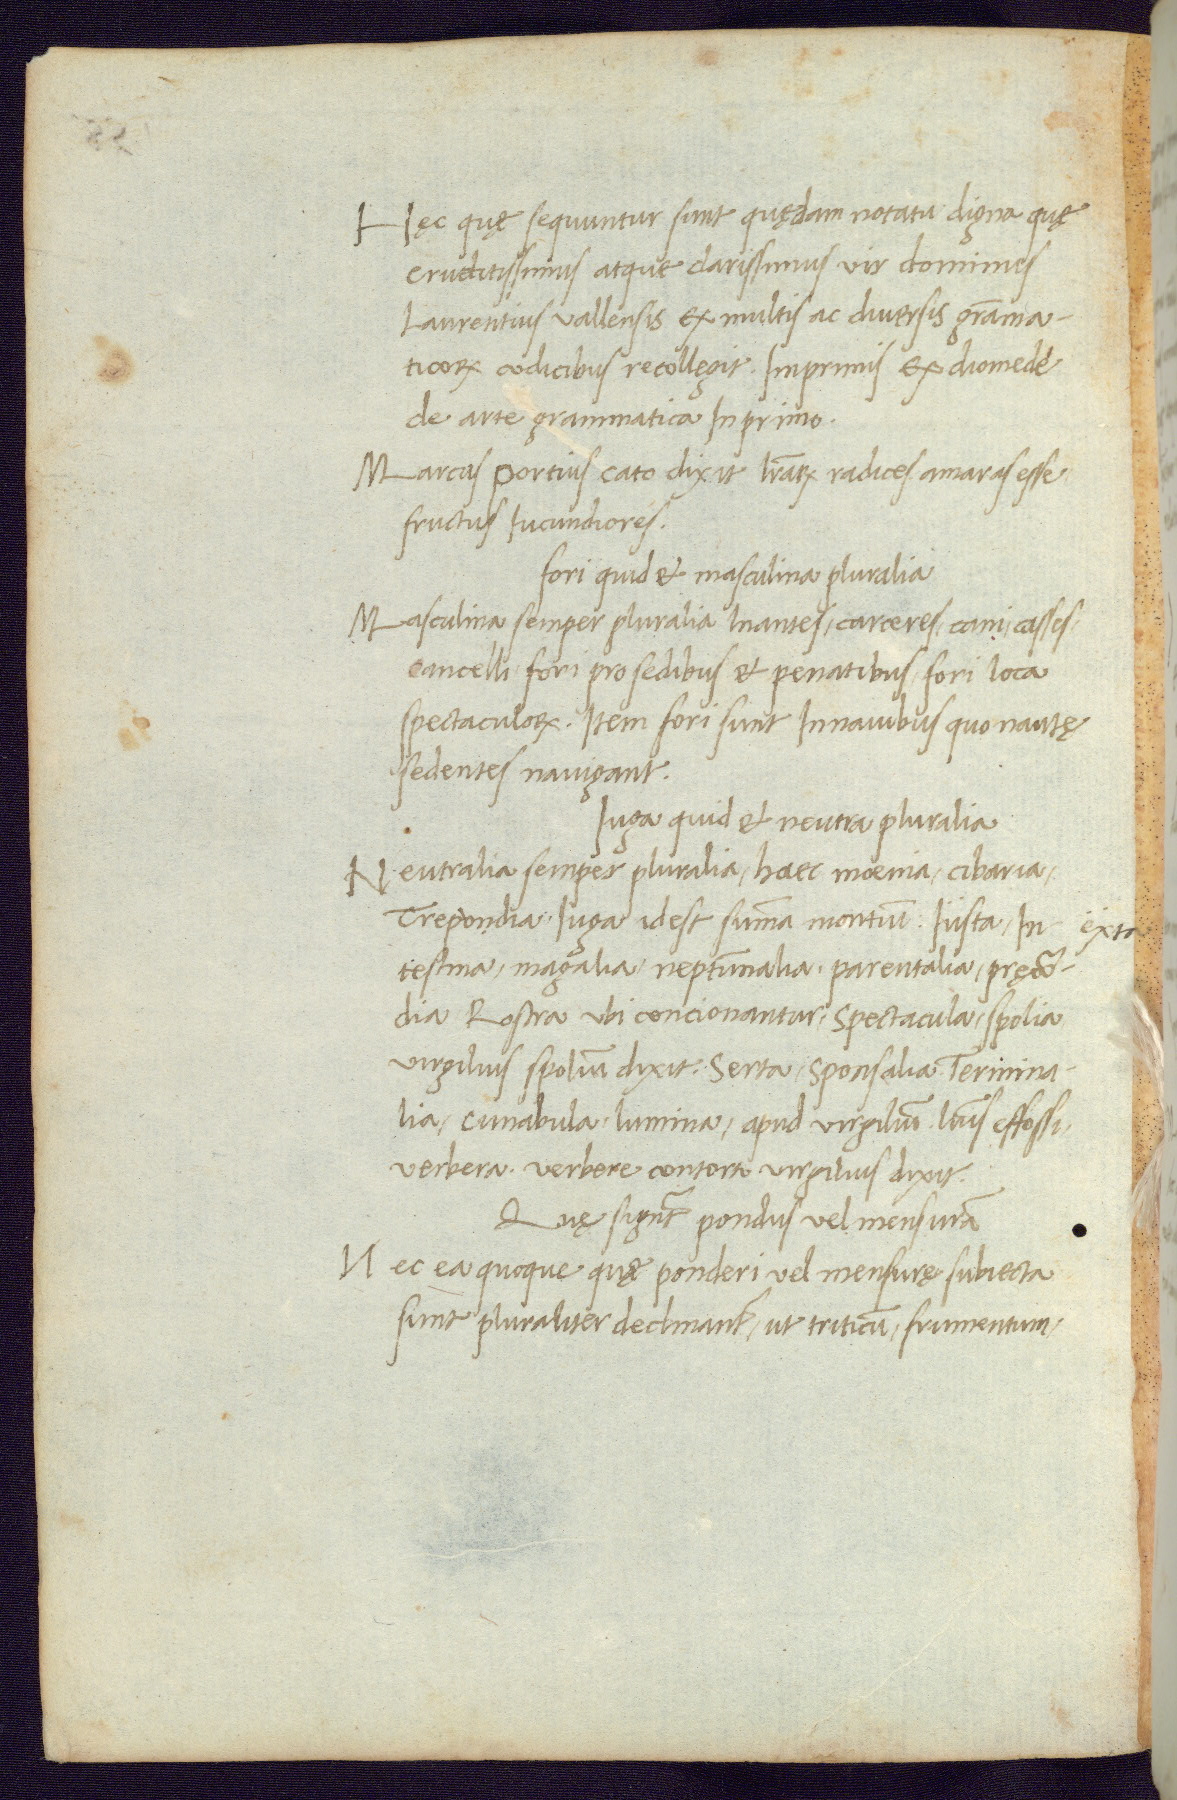 Hęc quę sequuntur sunt quędam notatu digna quę
eruditissimus atque clarissimus vir dominus
Laurentius vallensis ex multis ac diuersis grãma-
ticoꝝ codicibus recollęgit. Inprimis ex diomede
de arte grammatica In primo.
Marcus portius cato dixit lr̃aꝝ radices amaras esse
fructus Iucundiores.
fori quid et masculina pluralia
Masculina semper pluralia Inantes, carceres, cani, casses,
cancelli fori pro sedibus et penatibus, fori loca
spectaculoꝝ. Item fori sunt In nauibus quo nautę
sedentes nauigant.
Iuga quid et neutra pluralia
Neutralia semper pluralia, haec moenia, cibaria,
Trepondia, Iuga idest sum̃a montiũ. Iusta, In
exta
testina, magalia, neptũnalia, parentalia, pręcor-
dia Rostra ubi concionantur, spectacula, spolia
virgilius spoliũ dixit. Serta, Sponsalia Termina-
lia, cunabula, lumina, apud virgiliũ effossi,
verbera. verbere contorto virgilius dixit.
Quę signt̃ pondus vel mensurã
Nec ea quoque quę ponderi vel mensurę subiecta
sunt pluraliter declinant̃, ut triticũ, frumentum,